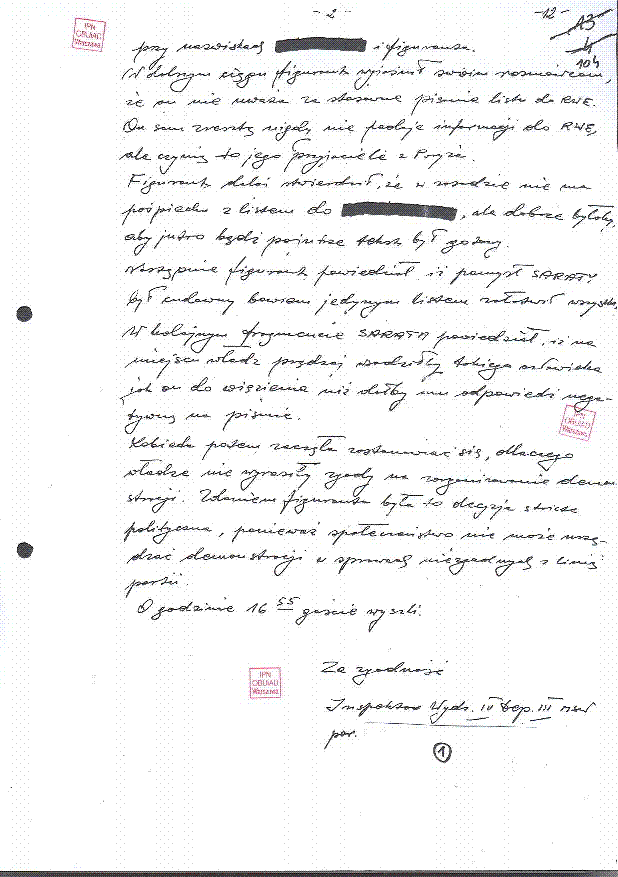 - 2 -
- 12 -
13
4
104
IPN
OBUiAD
Warszawa
przy nazwiskach i figuranta.
W dalszym ciągu figurant wyjaśnił swoim rozmówcom,
że on nie uważa za stosowne pisanie listu do RWE.
On sam zresztą nigdy nie podaje informacji do RWE,
ale czynią to jego przyjaciele z Paryża.
Figurant dalej stwierdził, że w zasadzie nie ma
pośpiechu z listem do , ale dobrze byłoby,
aby jutro bądź pojutrze tekst był gotowy.
Następnie figurant powiedział, iż pomysł SARATY
był cudowny bowiem jednym listem załatwił wszystko
W kolejnym fragmencie SARATA powiedział, iż na
miejscu władz prędzej wsadziłby takiego człowieka
jak on do więzienia niż dałby mu odpowiedź nega-
tywną na piśmie.
IPN
OBUiAD
Warszawa
Kobieta potem zaczęła zastanawiać się, dlaczego
władze nie wyraziły zgody na zorganizowanie demon
stracji. Zdaniem figuranta była to decyzja stricte
polityczna, ponieważ społeczeństwo nie może urzą-
dzać demonstracji w sprawach niezgodnych z linią
partii.
O godzinie 16 55 goście wyszli.
IPN
OBUiAD
Warszawa
Za zgodność
Inspektor Wydz. IV Dep. III MSW
por.
1